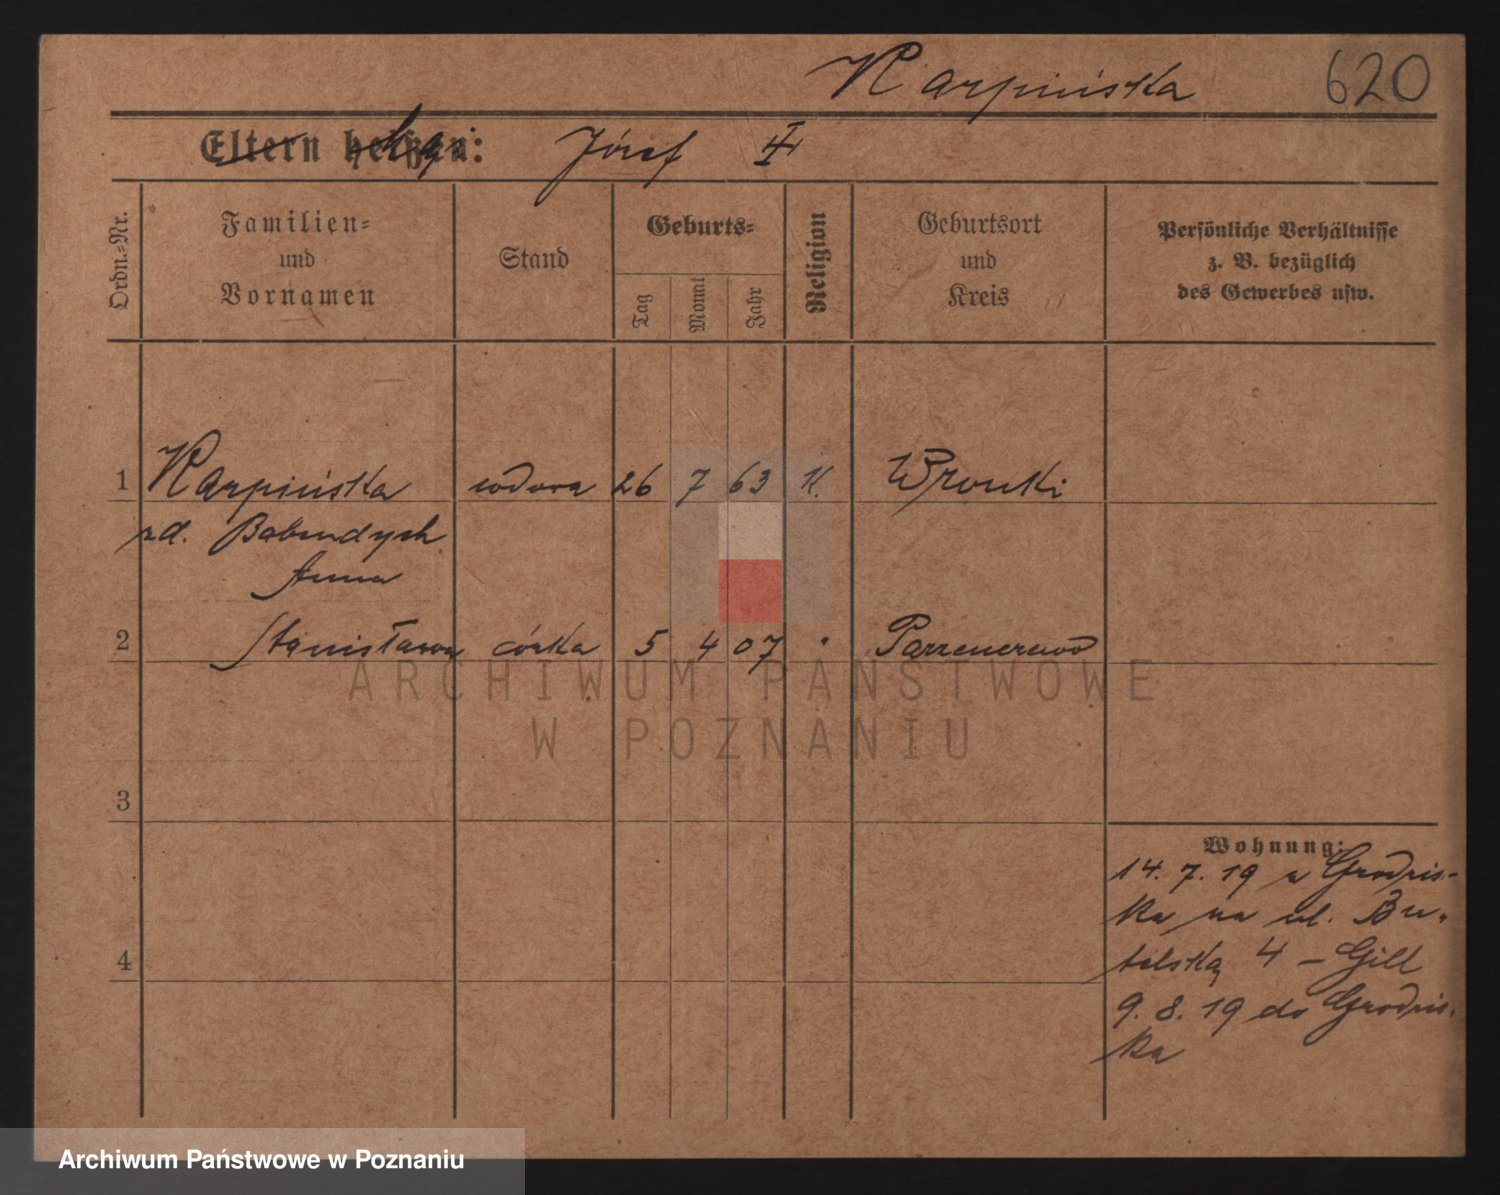 Karpińska 620
Eltern heißen: Józef ✝
Ordn.-Nr.
Familien-
und
Vornamen
Stand
Geburts-
Tag
Monat
Jahr
Religion
Geburtsort
und
Kreis
Persönliche Verhältnisse
z. B. bezüglich
des Gewerbes usw.
1 Karpińska wdowa 26 7 63 K. Wronki
zd. Babendych
Anna
2 Stanisława córka 5 4 07 " Parzenczewo
3
4
Wohnung:
14. 7. 19 z Grodzis-
ka na ul. Bu-
telską 4 – Gill
9. 8. 19 do Grodzis-
ka
ARCHIWUM PAŃSTWOWE
W POZNANIU
Archiwum Państwowe w Poznaniu